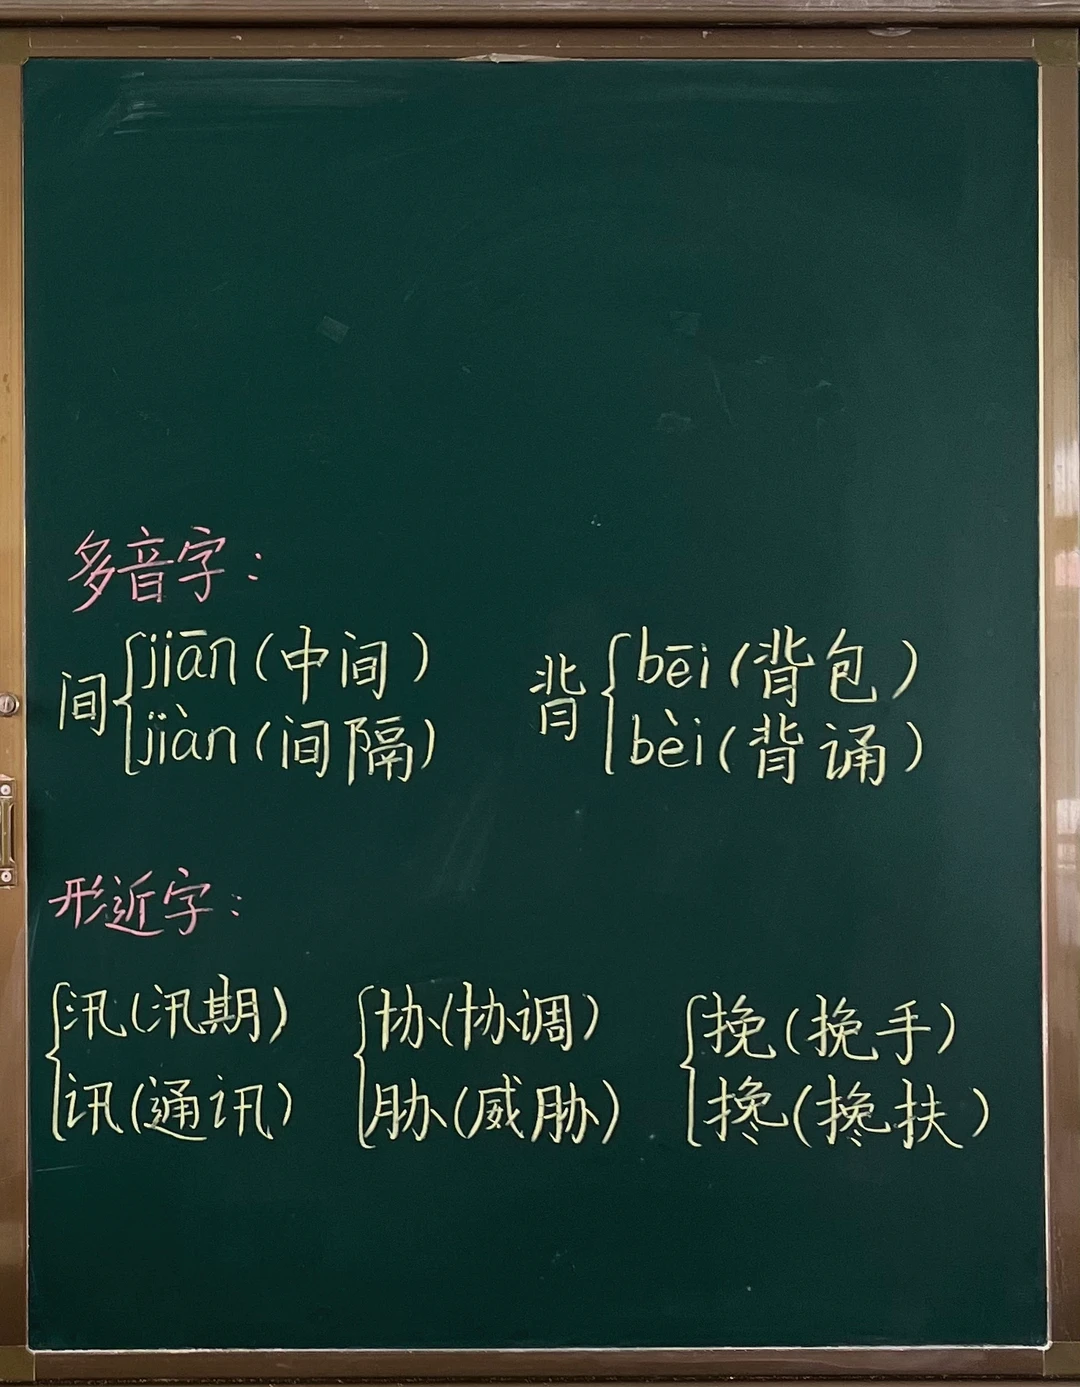 多音字：
间 { jiān（中间） 背 { bēi（背包）
jiàn（间隔） bèi（背诵）
形近字：
{ 汛（汛期） { 协（协调） { 挽（挽手）
讯（通讯） 胁（威胁） 搀（搀扶）